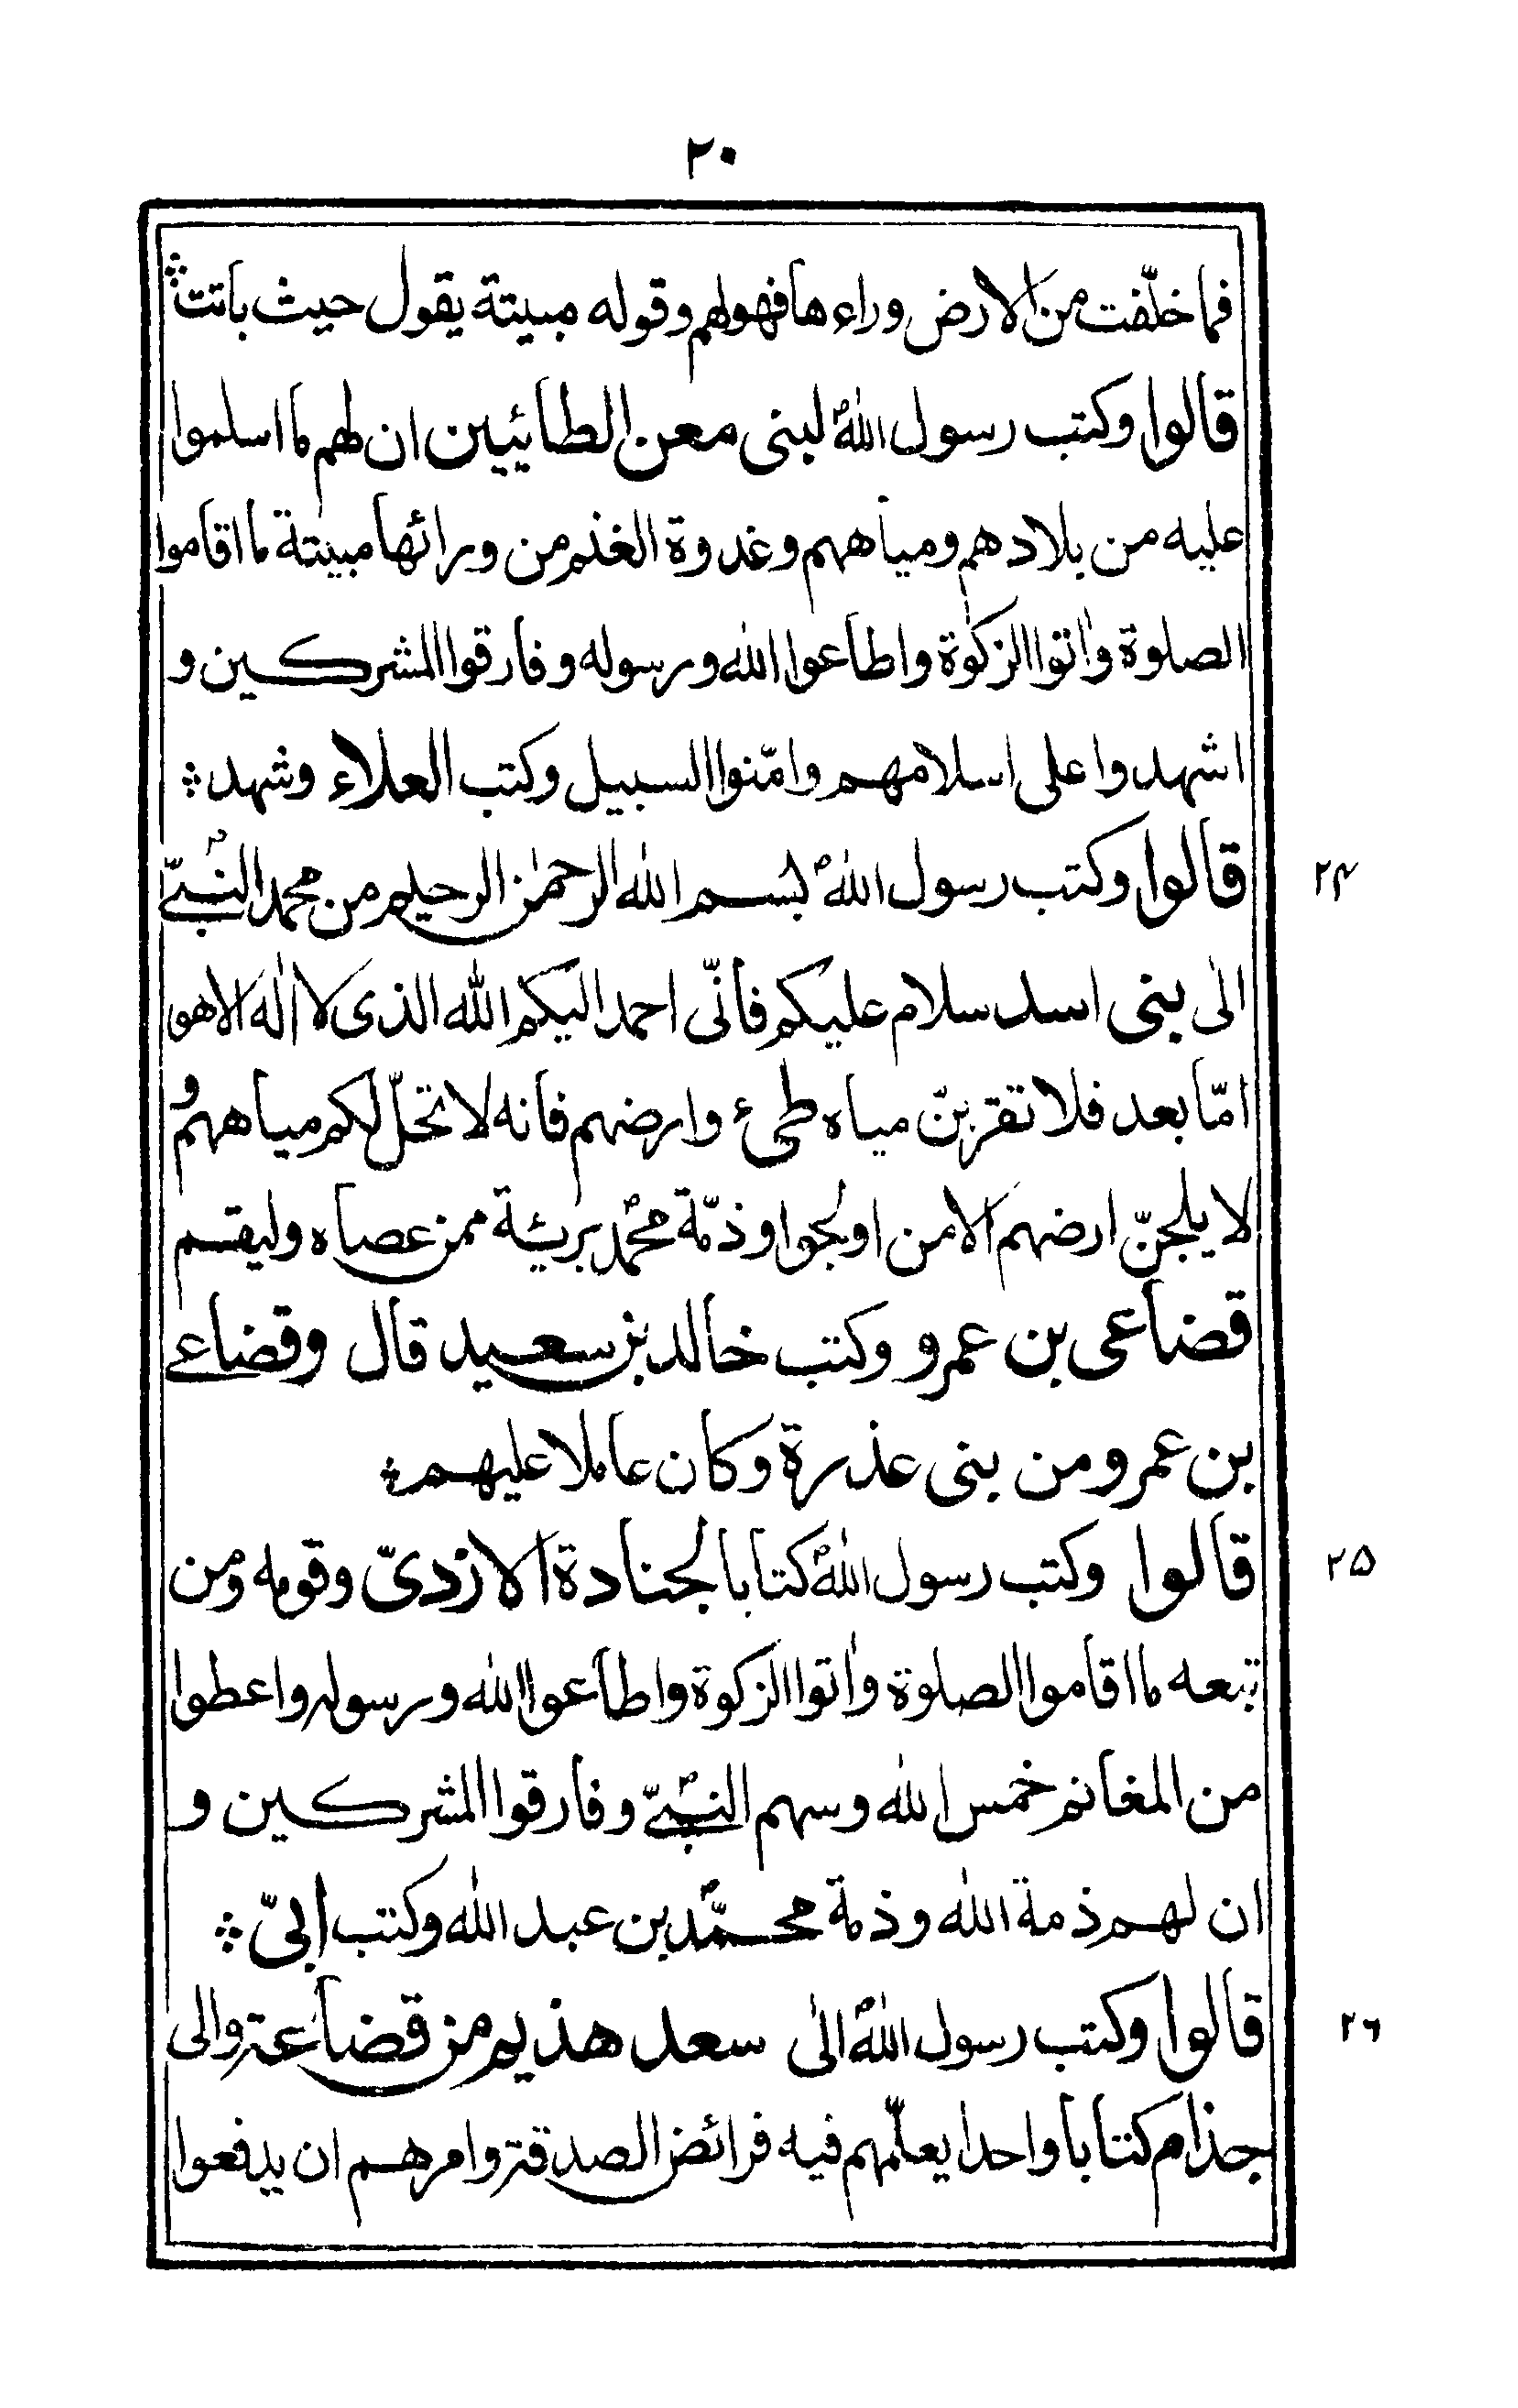 ٢٠
فما خلّفت من الارض وراءها فهولهم وقوله مبيتة يقول حيث باتت ⁘
قالوا وكتب رسول اللهؐ لبنى معن الطائيين ان لهم ما اسلموا
عليه من بلادهم ومياههم وغدوة الغنم من ورائها مبيتة ما اقاموا
الصلوة واٰتوا الزكوٰة واطاعوا الله ورسوله وفارقوا المشركين و
اشهدوا على اسلامهم وامّنوا السبيل وكتب العلاء وشهد ⁘
٢٤
قالوا وكتب رسول اللهؐ بسم الله الرحمٰن الرحيم من محمد النبىّؐ
الىٰ بنى اسد سلام عليكم فانّى احمد اليكم الله الذى لا الٰه الا هو
امّا بعد فلا تقربنّ مياه طىء وارضهم فانه لا تحلّ لكم مياههم و
لا يلجنّ ارضهم الا من اولجوا وذمّة محمدؐ بريئة ممن عصاه وليقم
قضاعى بن عمرو وكتب خالد بن سعيد قال وقضاعى
بن عمرو من بنى عذرة وكان عاملا عليهم ⁘
٢٥
قالوا وكتب رسول اللهؐ كتابا لجنادة الازدىّ وقومه ومن
تبعه ما اقاموا الصلوة واٰتوا الزكوة واطاعوا الله ورسوله واعطوا
من المغانم خمس الله وسهم النبىّؐ وفارقوا المشركين و
ان لهم ذمة الله وذمة محمّدؐ بن عبد الله وكتب ابىّ ⁘
٢٦
قالوا وكتب رسول اللهؐ الىٰ سعد هذيم من قضاعة والى
جذام كتابا واحدا يعلّمهم فيه فرائض الصدقة وامرهم ان يدفعوا